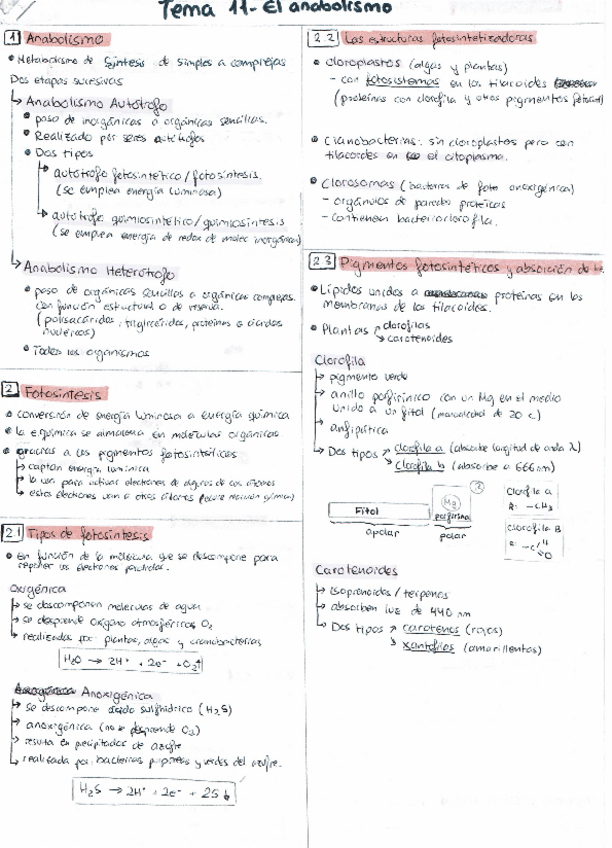 Tema 11- El anabolismo
1 Anabolismo
Metabolismo de síntesis de simples a complejas
Dos etapas sucesivas
Anabolismo Autótrofo
paso de inorgánicas a orgánicas sencillas.
Realizado por seres autótrofos
Dos tipos
autótrofo fotosintético / fotosíntesis.
(se emplea energía luminosa)
autótrofo quimiosintético / quimiosíntesis
(se emplea energía de redox de molec inorgánicas)
Anabolismo Heterótrofo
paso de orgánicas sencillas a orgánicas complejas.
con función estructural o de reserva.
(polisacáridos, triglicéridos, proteínas o ácidos
nucleicos)
Todos los organismos
2 Fotosíntesis
conversión de energía luminosa a energía química
la e.química se almacena en moléculas orgánicas
gracias a los pigmentos fotosintéticos
captan energía lumínica
la usan para activar electrones de algunos de sus átomos
estos electrones van a otros átomos
2.1 Tipos de fotosíntesis
En función de la molécula que se descompone para
reponer los electrones perdidos.
Oxigénica
se descomponen moléculas de agua
se desprende oxígeno atmosférico O₂
realizada por: plantas, algas y cianobacterias
H₂O → 2H⁺ + 2e⁻ + O₂↑
Anoxigénica
se descompone ácido sulfhídrico (H₂S)
anoxigénica (no se desprende O₂)
resulta en precipitados de azufre
realizada por: bacterias purpúreas y verdes del azufre.
H₂S → 2H⁺ + 2e⁻ + 2S↓
2.2 Las estructuras fotosintetizadoras
cloroplastos (algas y plantas)
- con fotosistemas en los tilacoides
(proteínas con clorofila y otros pigmentos fotosint)
Cianobacterias: sin cloroplastos pero con
tilacoides en el citoplasma.
Clorosomas (bacterias de foto anoxigénica)
- orgánulos de paredes proteicas
- contienen bacterioclorofila.
2.3 Pigmentos fotosintéticos y absorción de
Lípidos unidos a proteínas en las
membranas de los tilacoides.
Plantas clorofilas
carotenoides
Clorofila
pigmento verde
anillo porfirínico con un Mg en el medio
unido a un fitol (monoalcohol de 20 c)
anfipática
Dos tipos clorofila a (absorbe longitud de onda λ)
clorofila b (absorbe a 666 nm)
Fitol
Mg
porfirina
apolar polar
Clorofila a
R: -CH₃
Clorofila B
R: -C H O
Carotenoides
Isoprenoides / terpenos
absorben luz de 440 nm
Dos tipos carotenos (rojos)
xantofilas (amarillentas)